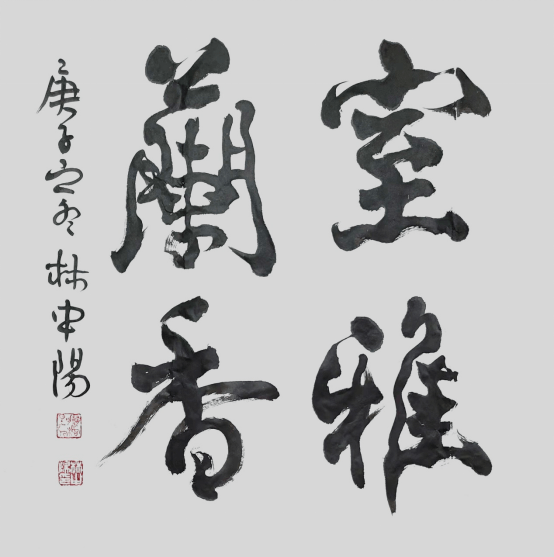 室雅
蘭香
庚子之冬 林中陽